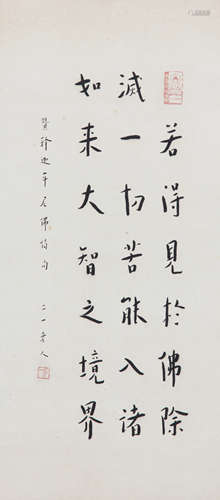 若得見於佛除
滅一切苦能入諸
如来大智之境界
釋迦牟尼佛偈句 二一老人